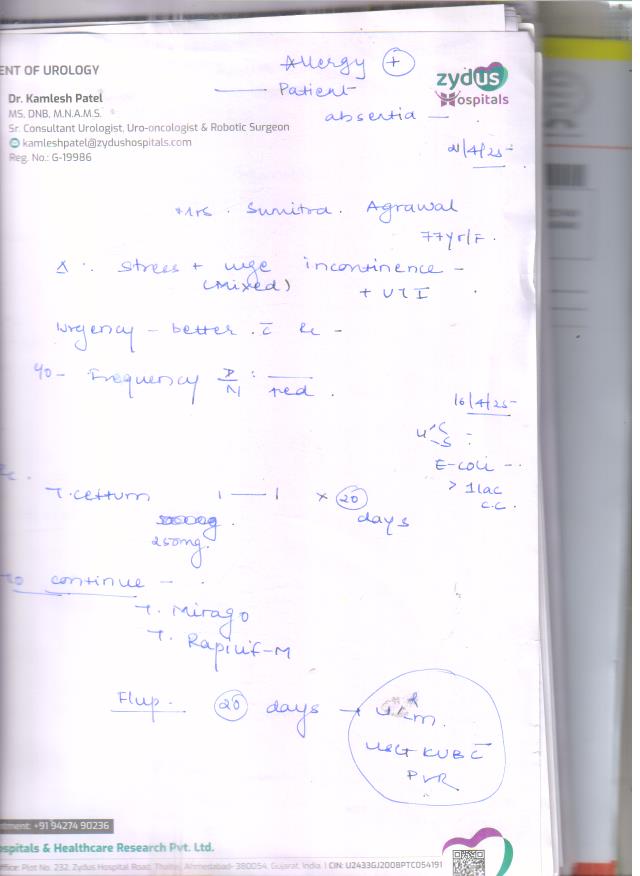 ENT OF UROLOGY
Dr. Kamlesh Patel
MS, DNB, M.N.A.M.S.
Sr. Consultant Urologist, Uro-oncologist & Robotic Surgeon
kamleshpatel@zydushospitals.com
Reg. No.: G-19986
zydus
Hospitals
Allergy +
Patient
absentia
/4/25
Mrs. Sunitra. Agrawal
77yr/F.
Δ: stress + urge incontinence -
(Mixed) + UTI
Urgency - better c̄ Rx -
Frequency D/N : red.
16/4/25
U C/S :
E-coli -
> 1lac
c.c.
T. cettum 1 — 1 x 20 days
250mg.
To continue -
T. Mirago
T. Rapilif-M
Flup. 20 days → U. R/m.
USG KUB c̄
PVR
tment: +91 94274 90236
spitals & Healthcare Research Pvt. Ltd.
ffice: Plot No. 232, Zydus Hospital Road, Thaltej, Ahmedabad- 380054, Gujarat, India. | CIN: U2433GJ2008PTC054191